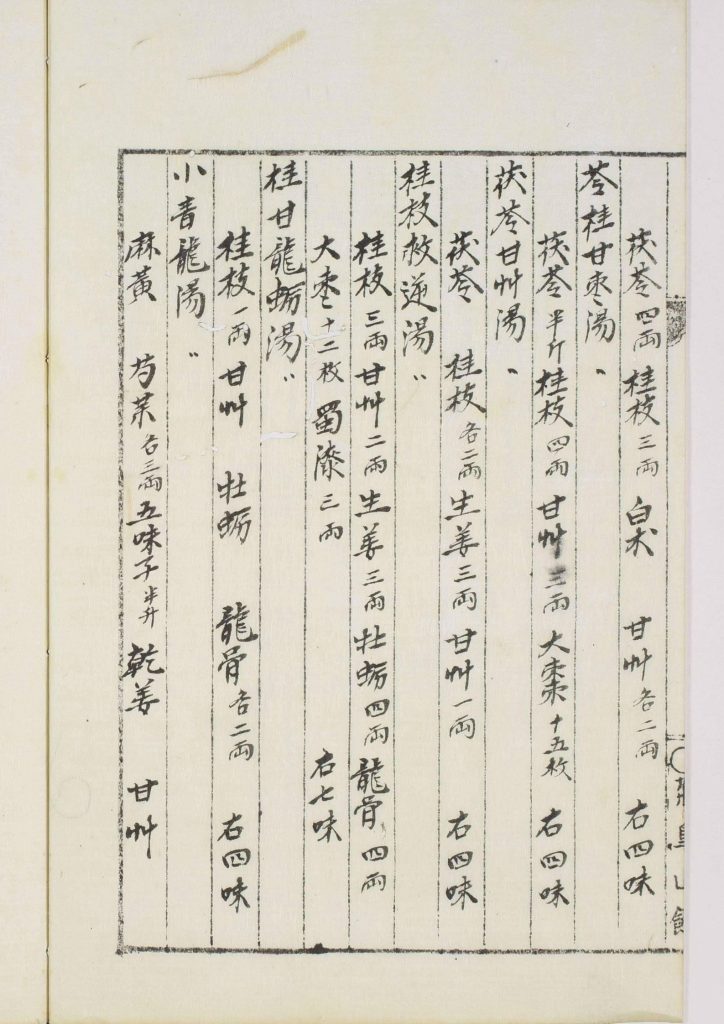 茯苓四両桂枝三両 白朮 甘艸各二両 右四味
苓桂甘枣湯〃
茯苓半斤桂枝四両甘艸三両大棗十五枚 右四味
茯苓甘艸湯〃
茯苓 桂枝各二両生姜三両甘艸一両 右四味
桂枝救逆湯〃
桂枝三両甘艸二両生姜三両牡蛎四両龍骨四両
大枣十二枚蜀漆三両 右七味
桂甘龍蛎湯〃
桂枝一両甘艸 牡蛎 龍骨各二両 右四味
小青龍湯〃
麻黄 芍薬各三両五味子半升乾姜 甘艸